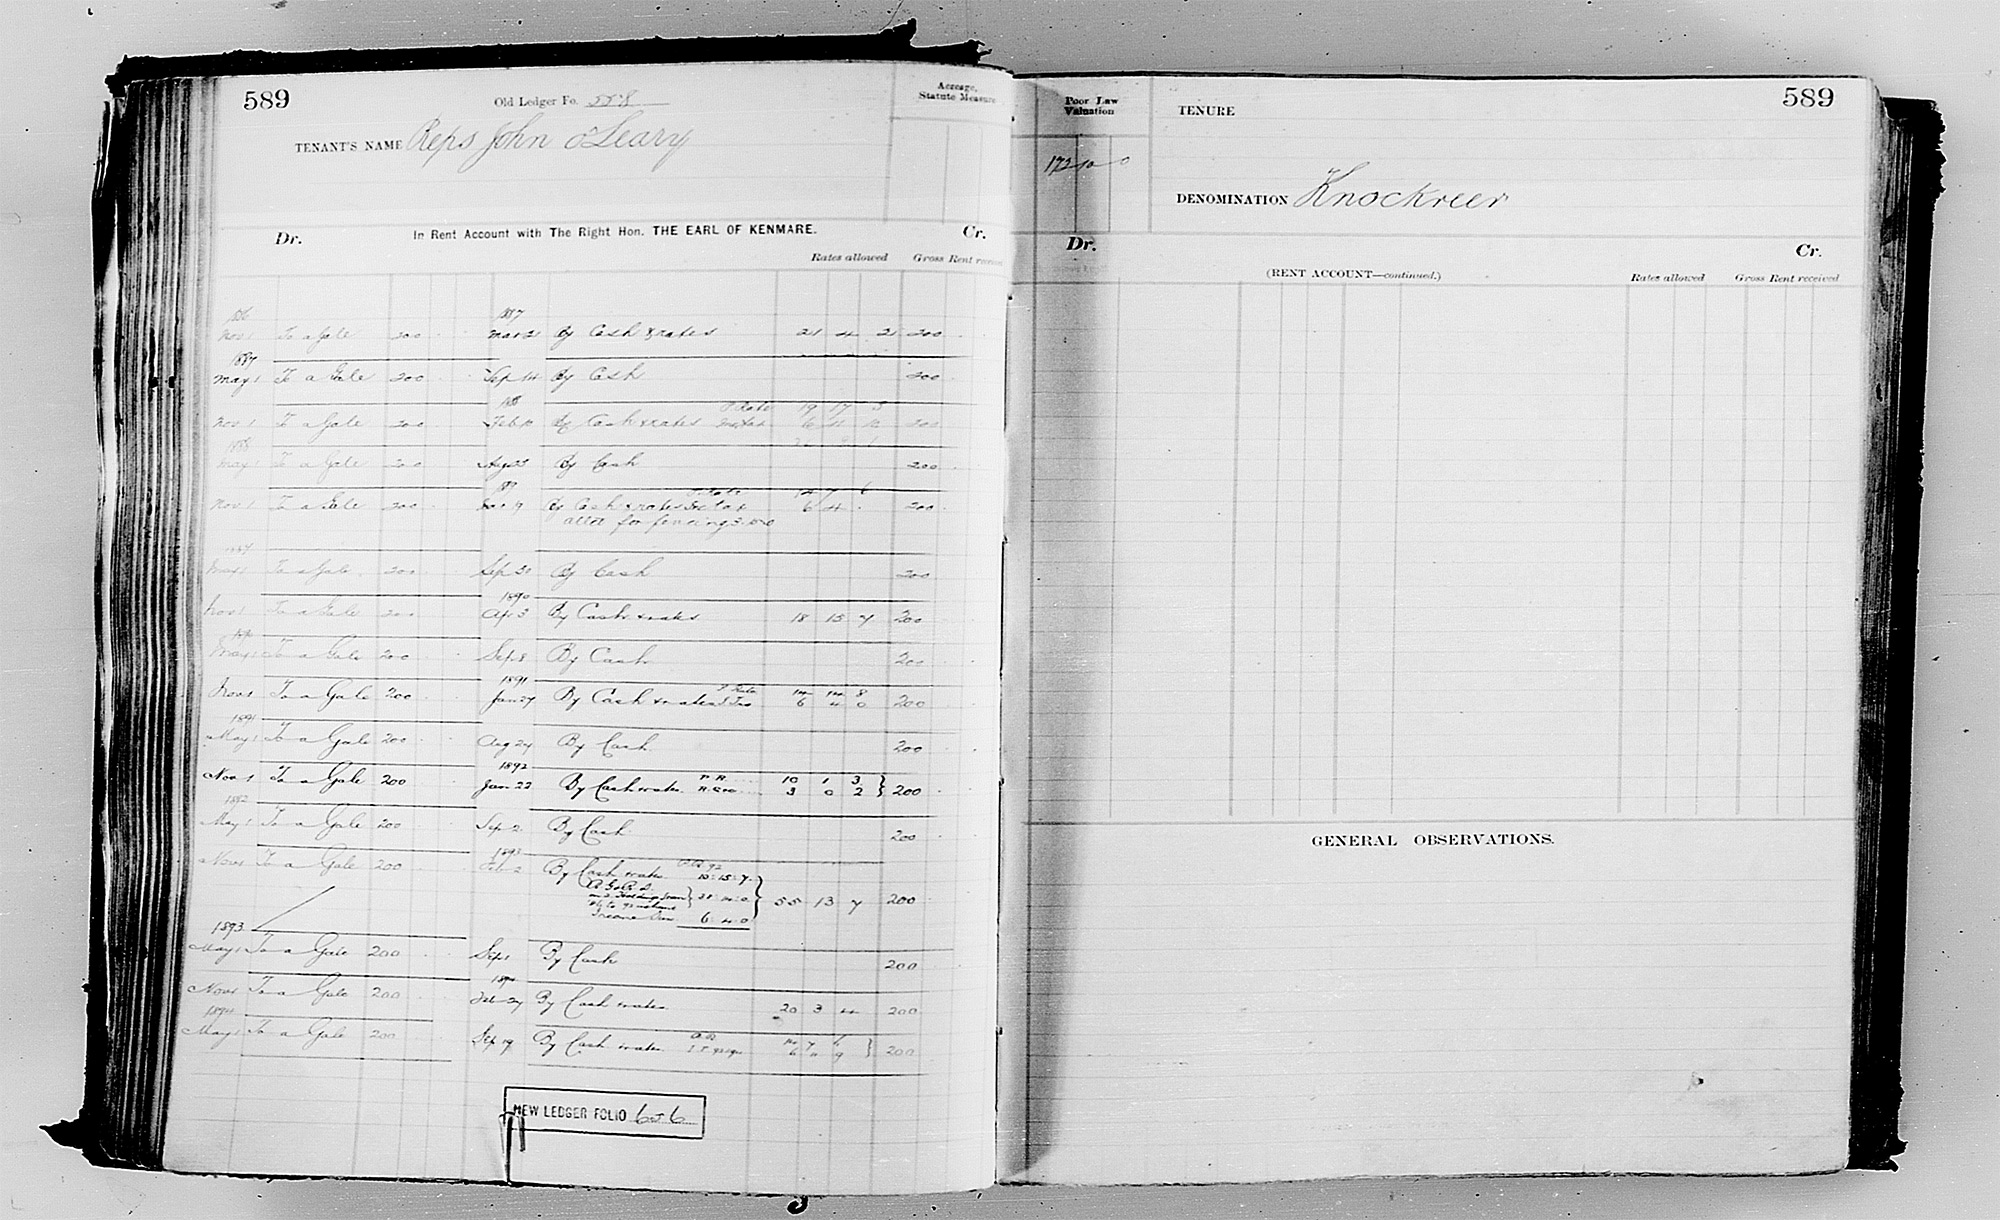 589
Old Ledger Fo. 558
Acreage,
Statute Measure
TENANT'S NAME Reps John O'Leary
In Rent Account with The Right Hon. THE EARL OF KENMARE.
Dr.
Cr.
Rates allowed
Gross Rent received
1886 1887
Nov 1 To a Gale 200 Mar 21 By Cash & rates 21 4 2 200
1887
May 1 To a Gale 200 Sep 14 By Cash 200
1888
Nov 1 To a Gale 200 Feb 10 By Cash & rates 19 17 3 200
1888
May 1 To a Gale 200 Aug 25 By Cash 200
1889
Nov 1 To a Gale 200 By Cash & rates Inc tax 6 4 200
allce for fencing
1889
May 1 To a Gale 200 Sep 30 By Cash 200
1890
Nov 1 To a Gale 200 Apr 3 By Cash & rates 18 15 7 200
1890
May 1 To a Gale 200 Sep 8 By Cash 200
1891
Nov 1 To a Gale 200 Jan 27 By Cash & rates 14 14 8
6 4 0 200
1891
May 1 To a Gale 200 Aug 24 By Cash 200
1892
Nov 1 To a Gale 200 Jan 22 By Cash & rates P.R. 10 1 3
3 0 2 200
1892
May 1 To a Gale 200 Sep 2 By Cash 200
1893
Nov 1 To a Gale 200 Feb 2 By Cash & rates 10 15 7
55 13 7 200
Income Tax 6 4 0
1893
May 1 To a Gale 200 Sep 1 By Cash 200
1894
Nov 1 To a Gale 200 Feb 27 By Cash & rates 20 3 4 200
1894
May 1 To a Gale 200 Sep 19 By Cash & rates 200
NEW LEDGER FOLIO 656
589
Poor Law
Valuation
172 10 0
TENURE
DENOMINATION Knockreer
Dr.
Cr.
(RENT ACCOUNT—continued.)
Rates allowed
Gross Rent received
GENERAL OBSERVATIONS.